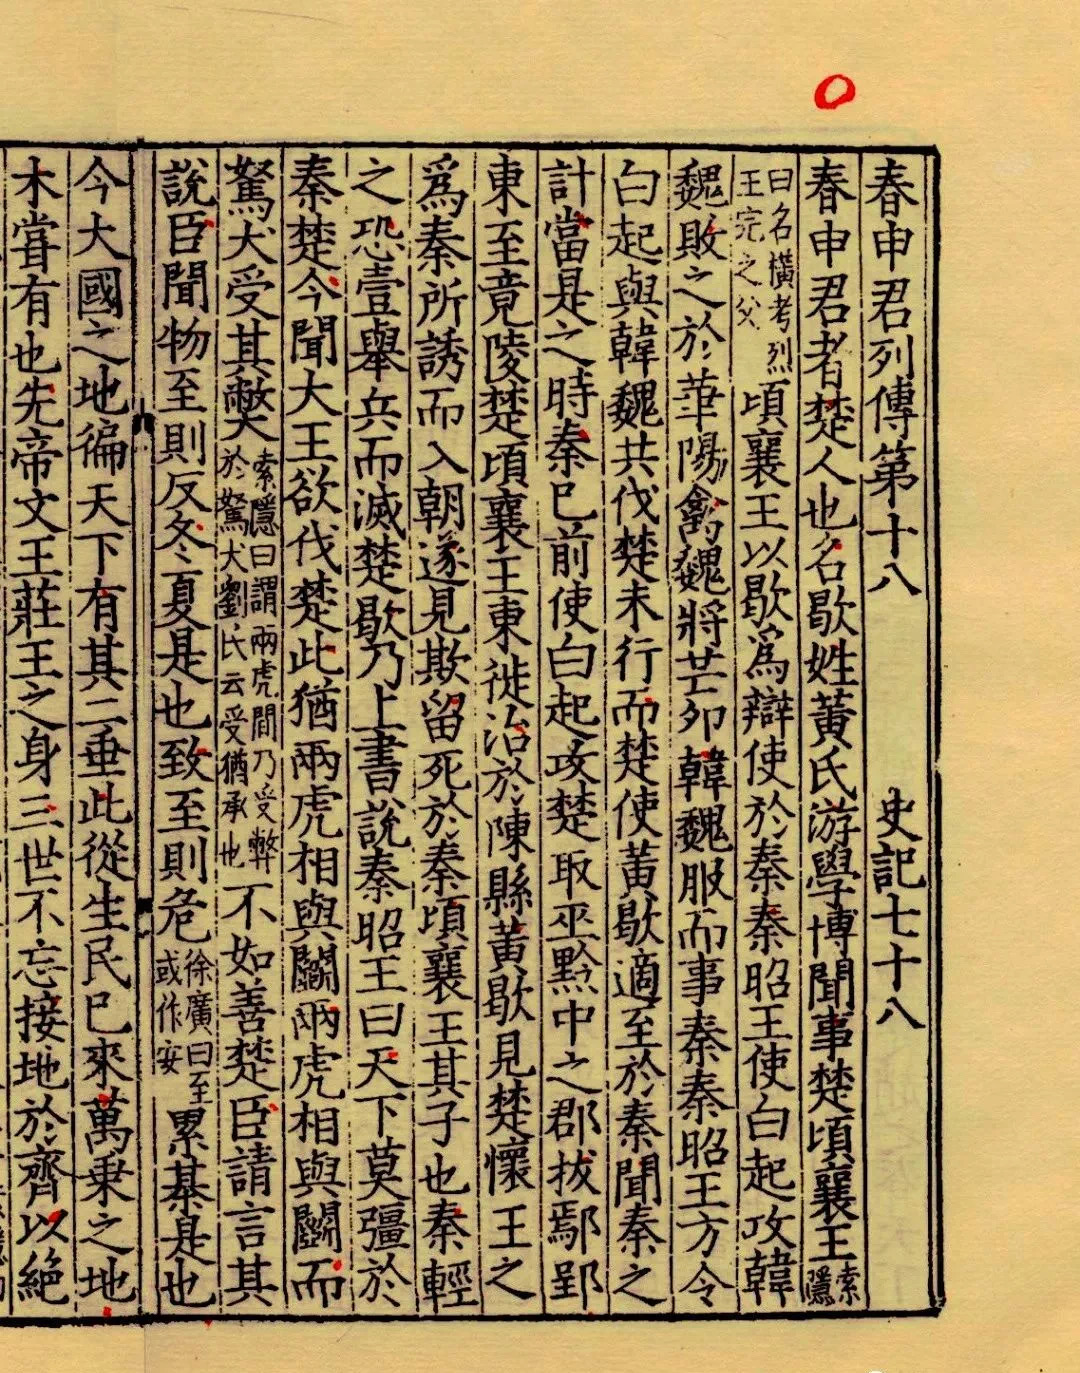 春申君列傳第十八　史記七十八
春申君者楚人也名歇姓黃氏游學博聞事楚頃襄王索隱
曰名橫考烈王完之父頃襄王以歇爲辯使於秦秦昭王使白起攻韓
魏敗之於華陽禽魏將芒卯韓魏服而事秦秦昭王方令
白起與韓魏共伐楚未行而楚使黃歇適至於秦聞秦之
計當是之時秦已前使白起攻楚取巫黔中之郡拔鄢郢
東至竟陵楚頃襄王東徙治於陳縣黃歇見楚懷王之
爲秦所誘而入朝遂見欺留死於秦頃襄王其子也秦輕
之恐壹舉兵而滅楚歇乃上書說秦昭王曰天下莫彊於
秦楚今聞大王欲伐楚此猶兩虎相與鬬兩虎相與鬬而
駑犬受其獘索隱曰謂兩虎鬬乃受弊於駑犬劉氏云受猶承也不如善楚臣請言其
說臣聞物至則反冬夏是也致至則危徐廣曰至或作安累棊是也
今大國之地徧天下有其二垂此從生民已來萬乘之地
未嘗有也先帝文王莊王之身三世不忘接地於齊以絕